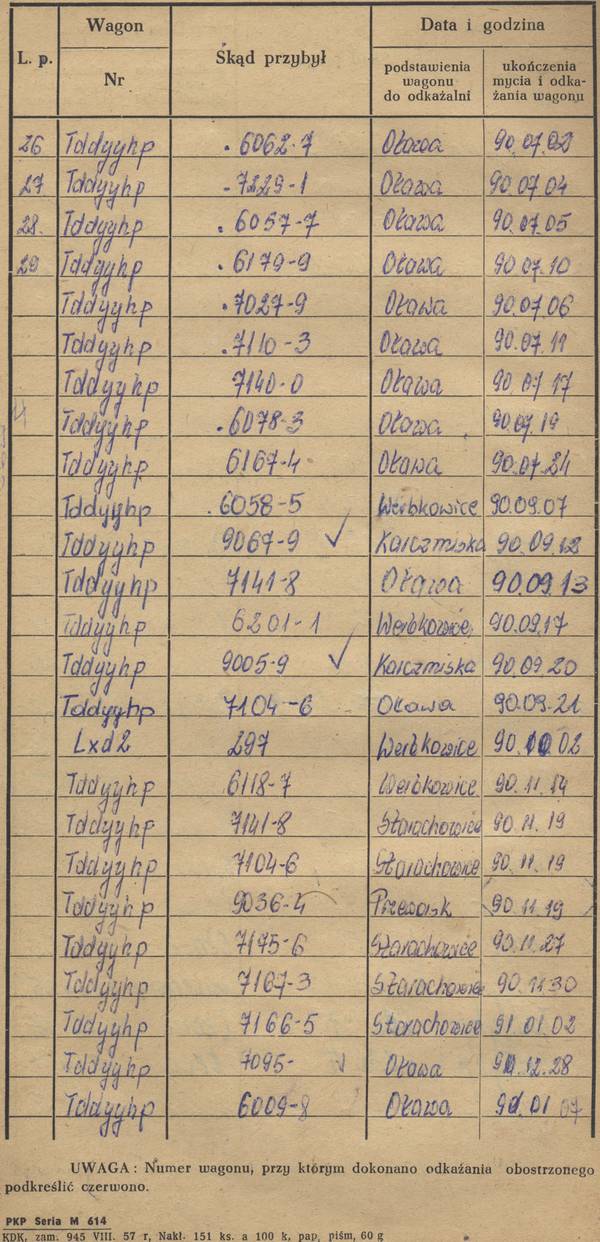 L. p.
Wagon
Nr
Skąd przybył
Data i godzina
podstawienia wagonu do odkażalni
ukończenia mycia i odka-żania wagonu
26 Tddyyhp . 6062-7 Oława 90.07.02
27 Tddyyhp - 7229-1 Oława 90.07.04
28. Tddyyhp . 6057-7 Oława 90.07.05
29 Tddyyhp . 6179-9 Oława 90.07.10
Tddyyhp . 7027-9 Oława 90.07.06
Tddyyhp . 7110-3 Oława 90.07.11
Tddyyhp 7140-0 Oława 90.07.17
Tddyyhp . 6078-3 Oława 90.07.19
Tddyyhp 6167-4 Oława 90.07.24
Tddyyhp . 6058-5 Werbkowice 90.09.07
Tddyyhp 9067-9 ✓ Karczmiska 90.09.12
Tddyyhp 7141-8 Oława 90.09.13
Tddyyhp 6201-1 Werbkowice 90.09.17
Tddyyhp 9005-9 ✓ Karczmiska 90.09.20
Tddyyhp 7104-6 Oława 90.09.21
Lxd2 297 Werbkowice 90.10.02
Tddyyhp 6118-7 Werbkowice 90.11.14
Tddyyhp 7141-8 Starachowice 90.11.19
Tddyyhp 7104-6 Starachowice 90.11.19
Tddyyhp 9036-4 Przeworsk 90.11.19
Tddyyhp 7175-6 Starachowice 90.11.27
Tddyyhp 7167-3 Starachowice 90.11.30
Tddyyhp 7166-5 Starachowice 91.01.02
Tddyyhp 7095- ✓ Oława 90.12.28
Tddyyhp 6009-8 Oława 91.01.07
UWAGA: Numer wagonu, przy którym dokonano odkażania obostrzonego
podkreślić czerwono.
PKP Seria M 614
KDK, zam. 945 VIII. 57 r, Nakł. 151 ks. a 100 k, pap. piśm, 60 g